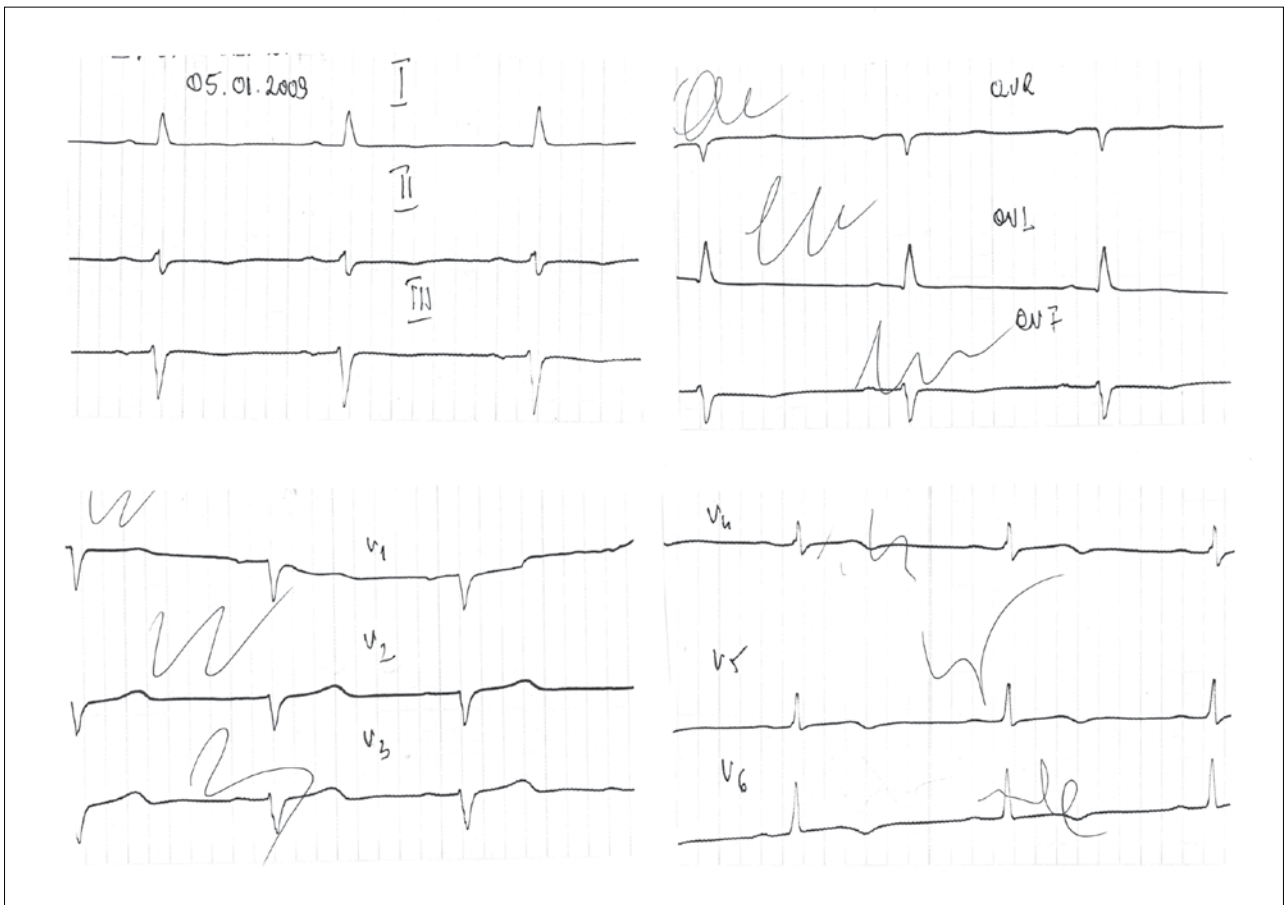 05.01.2009
I
II
III
aVR
aVL
aVF
V1
V2
V3
V4
V5
V6